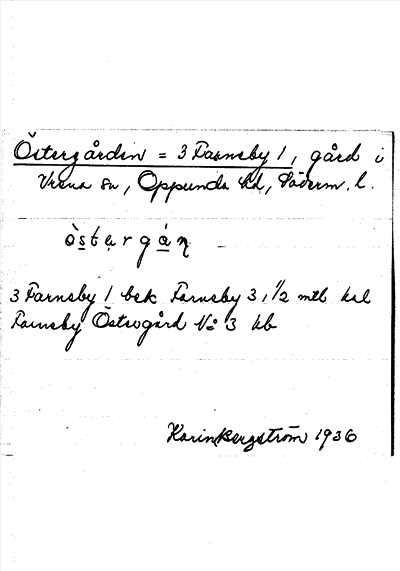 Östergården = 3 Farnsby 1, gård i
Vrena sn, Oppunda hd, Söderm. l.
òstergán
3 Farnsby 1 bsk Farnsby 3, 1/2 mtl ksl
Farnsby Östergård No 3 kb
Karin Bergström 1936